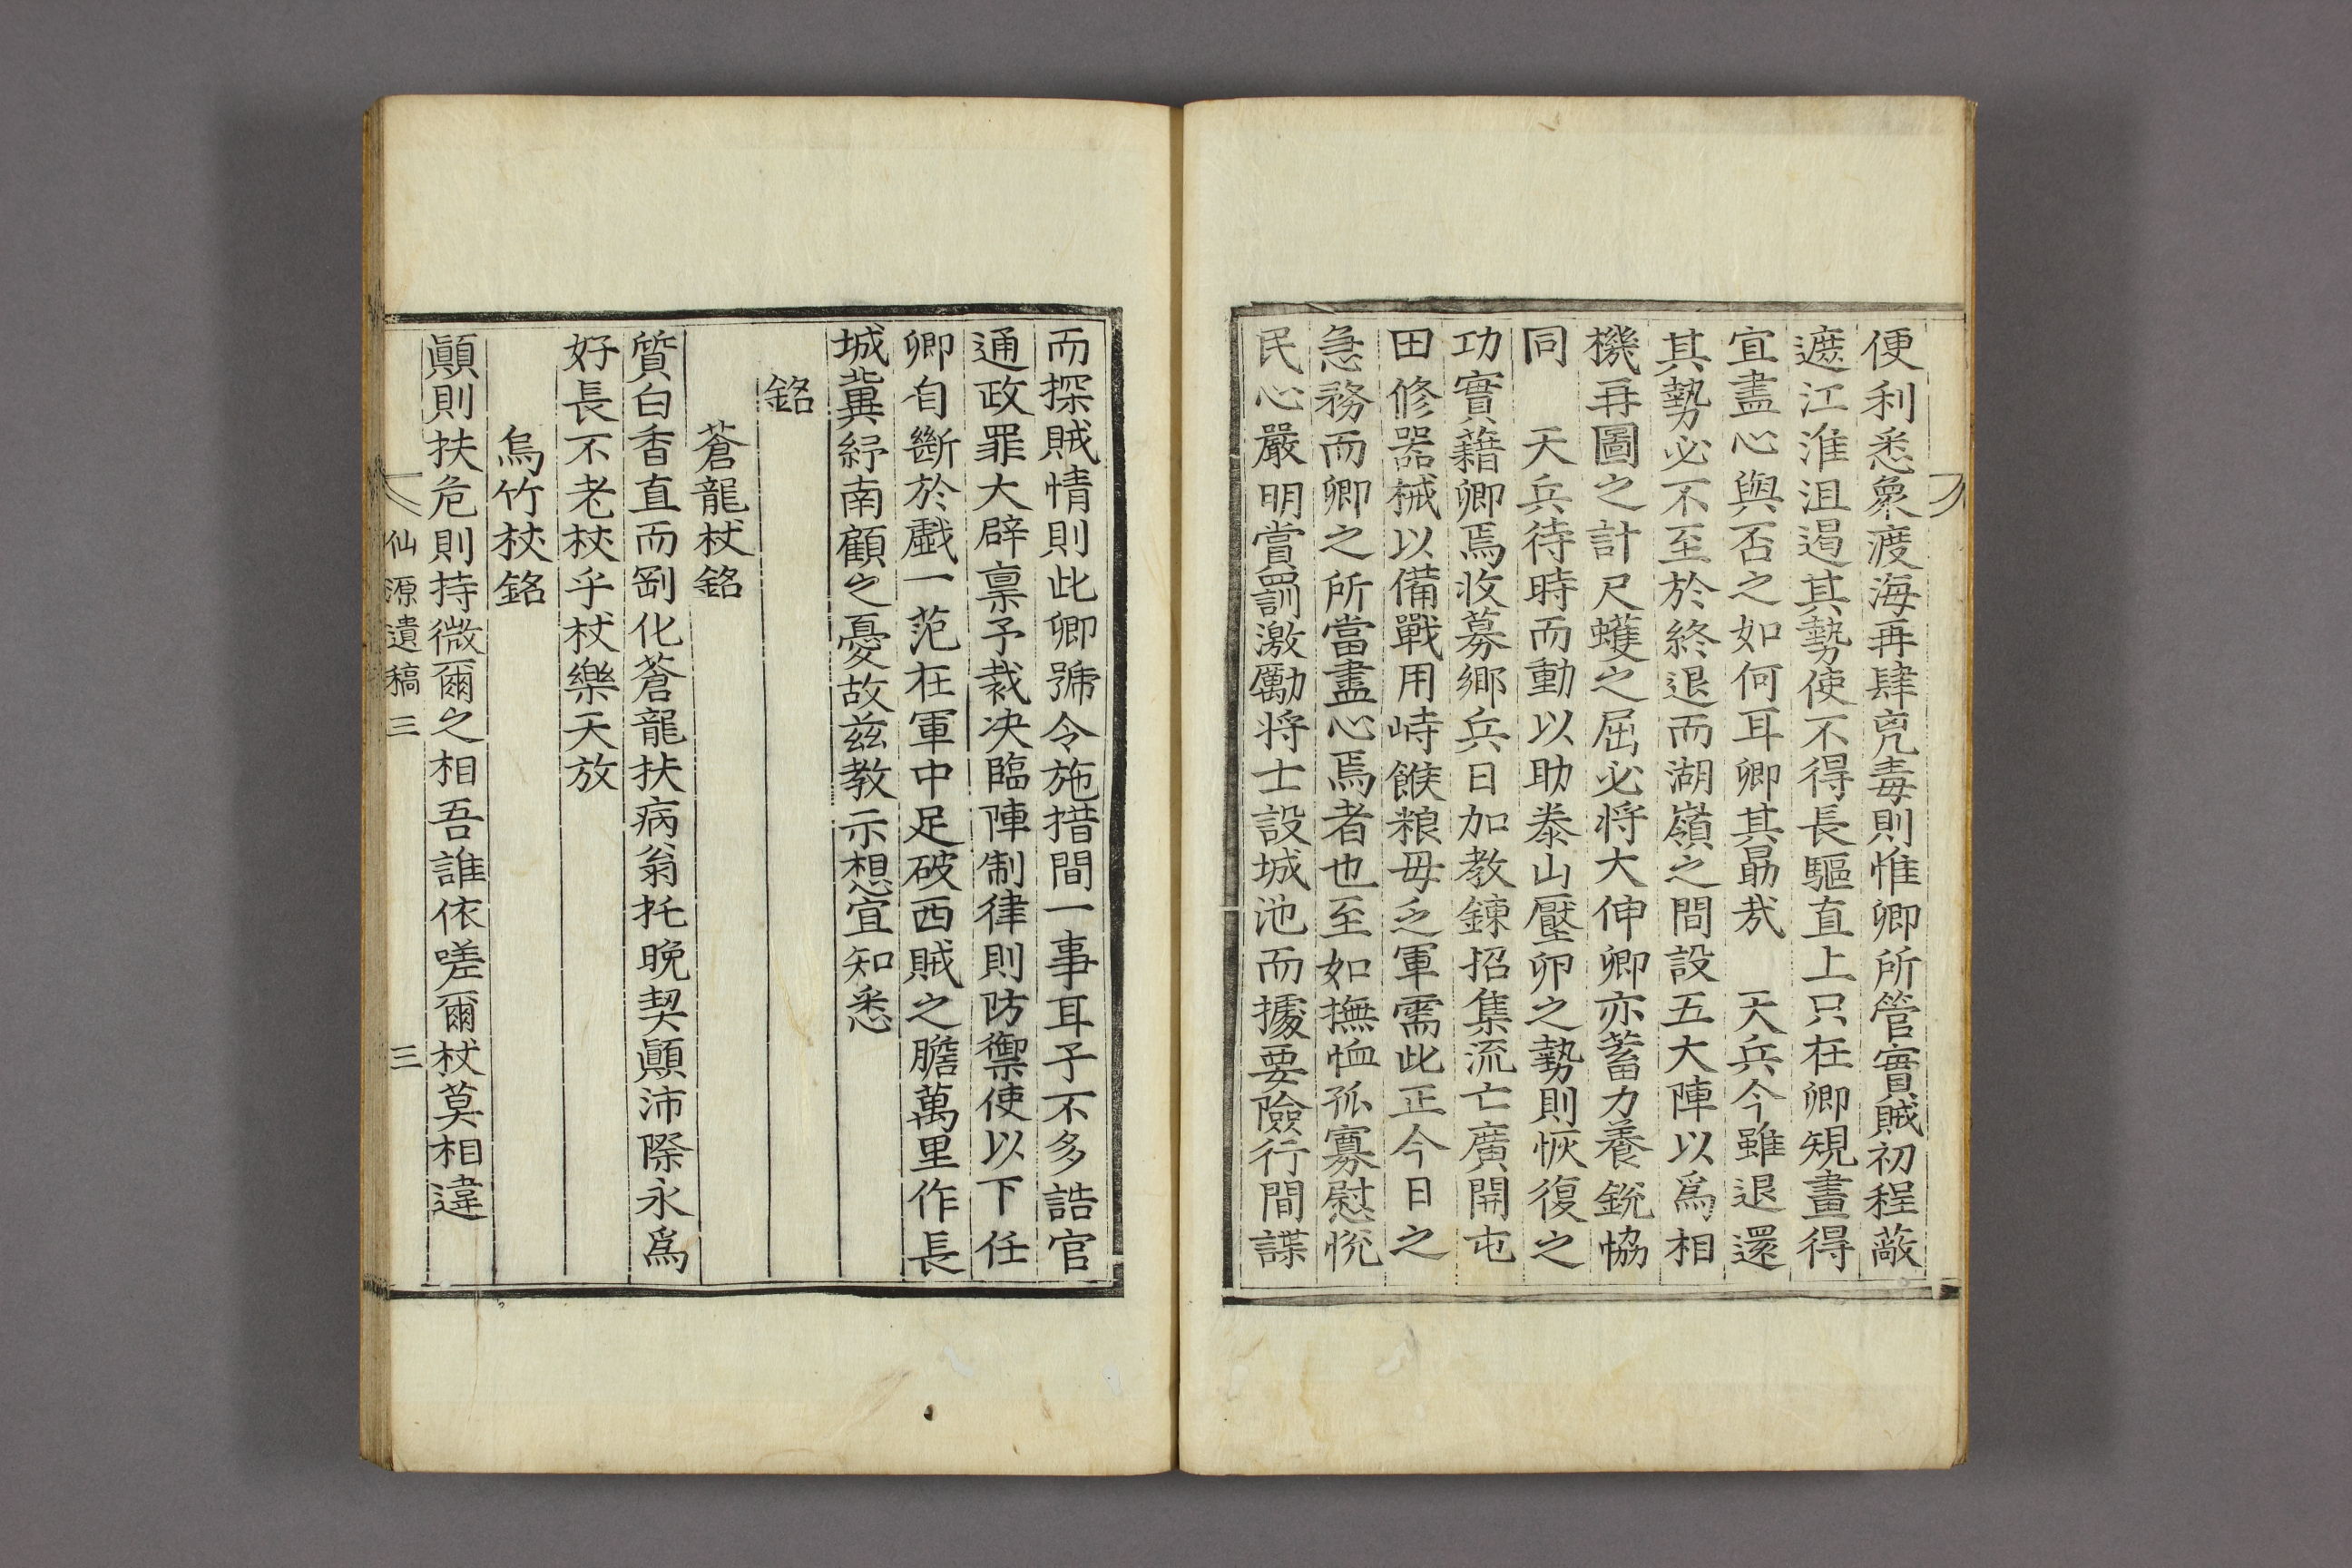 便利悉衆渡海再肆兇毒則惟卿所管實賊初程蔽
遮江淮沮遏其勢使不得長驅直上只在卿規畫得
宜盡心與否之如何耳卿其勗哉　天兵今雖退還
其勢必不至於終退而湖嶺之間設五大陣以爲相
機再圖之計尺蠖之屈必將大伸卿亦蓄力養銳恊
同　天兵待時而動以助泰山壓卵之勢則恢復之
功實藉卿焉收募鄉兵日加教鍊招集流亡廣開屯
田修器械以備戰用峙餱粮毋乏軍需此正今日之
急務而卿之所當盡心焉者也至如撫恤孤寡慰悅
民心嚴明賞罰激勵将士設城池而據要險行間諜
而探賊情則此卿號令施措間一事耳予不多誥官
通政罪大辟禀予裁决臨陣制律則防禦使以下任
卿自斷於戱一范在軍中足破西賊之膽萬里作長
城冀紓南顧之憂故兹教示想宜知悉
銘
蒼龍杖銘
質白香直而剛化蒼龍扶病翁托晚契顚沛際永爲
好長不老杖乎杖樂天放
烏竹杖銘
顚則扶危則持微爾之相吾誰依嗟爾杖莫相違
仙源遺稿三　三